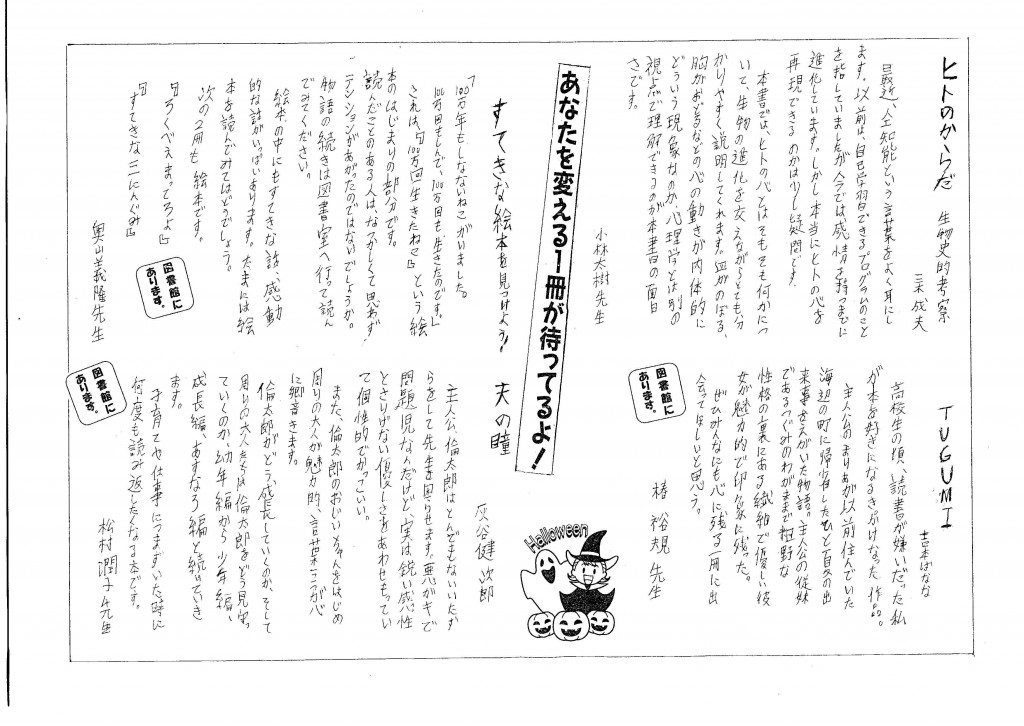 ヒトのからだ　生物史的考察
三木成夫
最近、人工知能という言葉をよく耳にし
ます。以前は、自己学習できるプログラムのこと
を指していましたが、今では感情を持つまでに
進化しています。しかし、本当にヒトの心を
再現できるのかは少し疑問です。
本書では、ヒトの心とはそもそも何かにつ
いて、生物の進化を交えながらとても分
かりやすく説明してくれます。血がのぼる、
胸がおどるなどの心の動きが肉体的に
どういう現象なのか、心理学とは別の
視点で理解できるのが本書の面白
さです。
小林太樹先生
TUGUMI
吉本ばなな
高校生の頃、読書が嫌いだった私
が本を好きになるきっかけなった作品。
主人公のまりあが以前住んでいた
海辺の町に帰省したひと夏の出
来事をえがいた物語。主人公の従妹
であるつぐみのわがままで粗野な
性格の裏にある繊細で優しい彼
女が魅力的で印象に残った。
ぜひみんなにも心に残る一冊に出
会ってほしいと思う。
椿　裕規　先生
図書館に
あります。
あなたを変える1冊が待ってるよ！
Halloween
すてきな絵本を見つけよう！
「100万年もしなないねこがいました。
100万回もしんで、100万回も生きたのです。」
これは、『100万回生きたねこ』という絵
本のはじまりの部分です。
読んだことのある人は、なつかしくて思わず
テンションがあがったのではないでしょうか。
物語の続きは図書室へ行って読ん
でみてください。
絵本の中にもすてきな話、感動
的な話がいっぱいあります。たまには絵
本を読んでみてはどうでしょう。
次の2冊も絵本です。
『ろくべえまってろよ』
『すてきな三にんぐみ』
奥山義隆先生
図書館に
あります。
天の瞳
灰谷健次郎
主人公、倫太郎はとんでもないいたず
らをして先生を困らせます。悪がキで
問題児なんだけど、実は鋭い感性
とさりげない優しさをあわせもってい
て個性的でかっこいい。
また、倫太郎のおじいちゃんをはじめ
周りの大人が魅力的、言葉一つ一つが心
に響きます。
倫太郎がどう成長していくのか、そして
周りの大人たちは倫太郎をどう見守っ
ていくのか、幼年編から少年編、
成長編、あすなろ編と続いていき
ます。
子育てや仕事につまずいた時に
何度も読み返したくなる本です。
松村潤子先生
図書館に
あります。